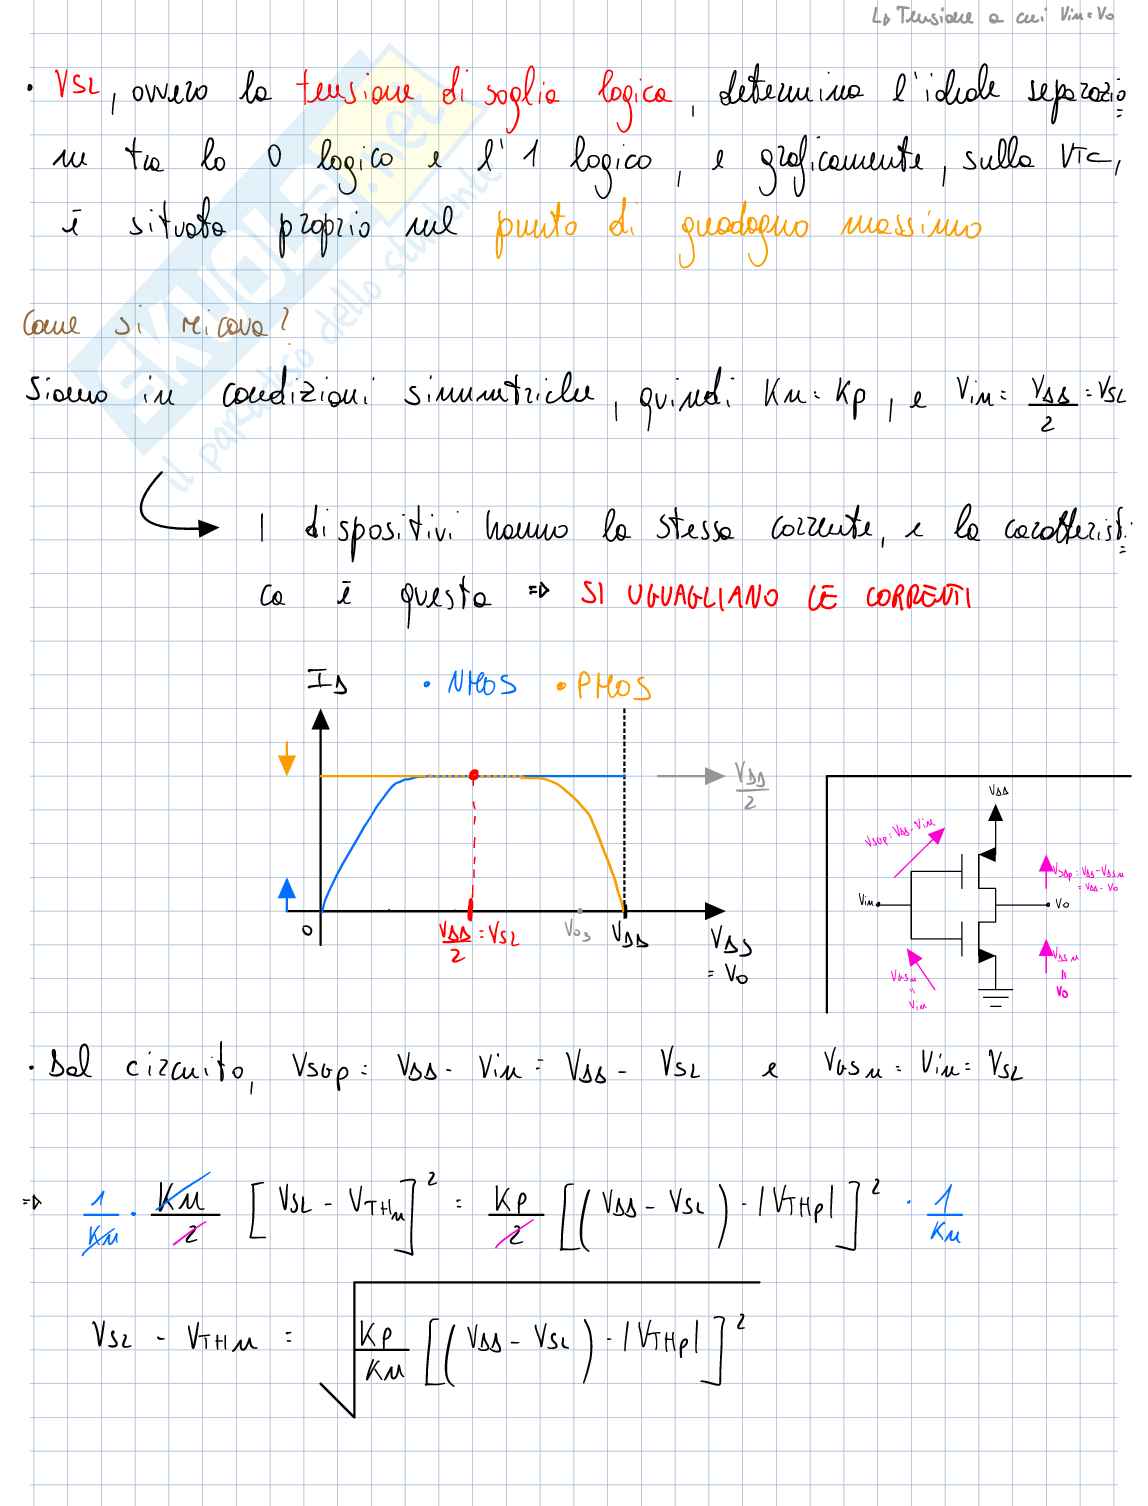 ↳ Tensione a cui Vin=Vo
• VSL, ovvero la tensione di soglia logica, determina l'ideale separazio=
ne tra lo 0 logico e l'1 logico, e graficamente, sulla VTC,
è situata proprio nel punto di guadagno massimo
Come si ricava?
Siamo in condizioni simmetriche, quindi Kn = Kp, e Vin = VDD/2 = VSL
I dispositivi hanno la stessa corrente, e la caratteristi=
ca è questa => SI UGUAGLIANO LE CORRENTI
ID • NMOS • PMOS
VDD/2
0 VDD/2 = VSL VDS VDD VDS = VO
VDD
VSGp = VDD - Vin
VSDp = VDD - VDSn = VDD - VO
Vin VO
VGSn = Vin
VDSn = VO
• Dal circuito, VSGp = VDD - Vin = VDD - VSL e VGSn = Vin = VSL
=> 1/Kn · Kn/2 [VSL - VTHn]² = Kp/2 [(VDD - VSL) - |VTHp|]² · 1/Kn
VSL - VTHn = √ Kp/Kn [(VDD - VSL) - |VTHp|]²
SKUOLA.net
il paradiso dello studente